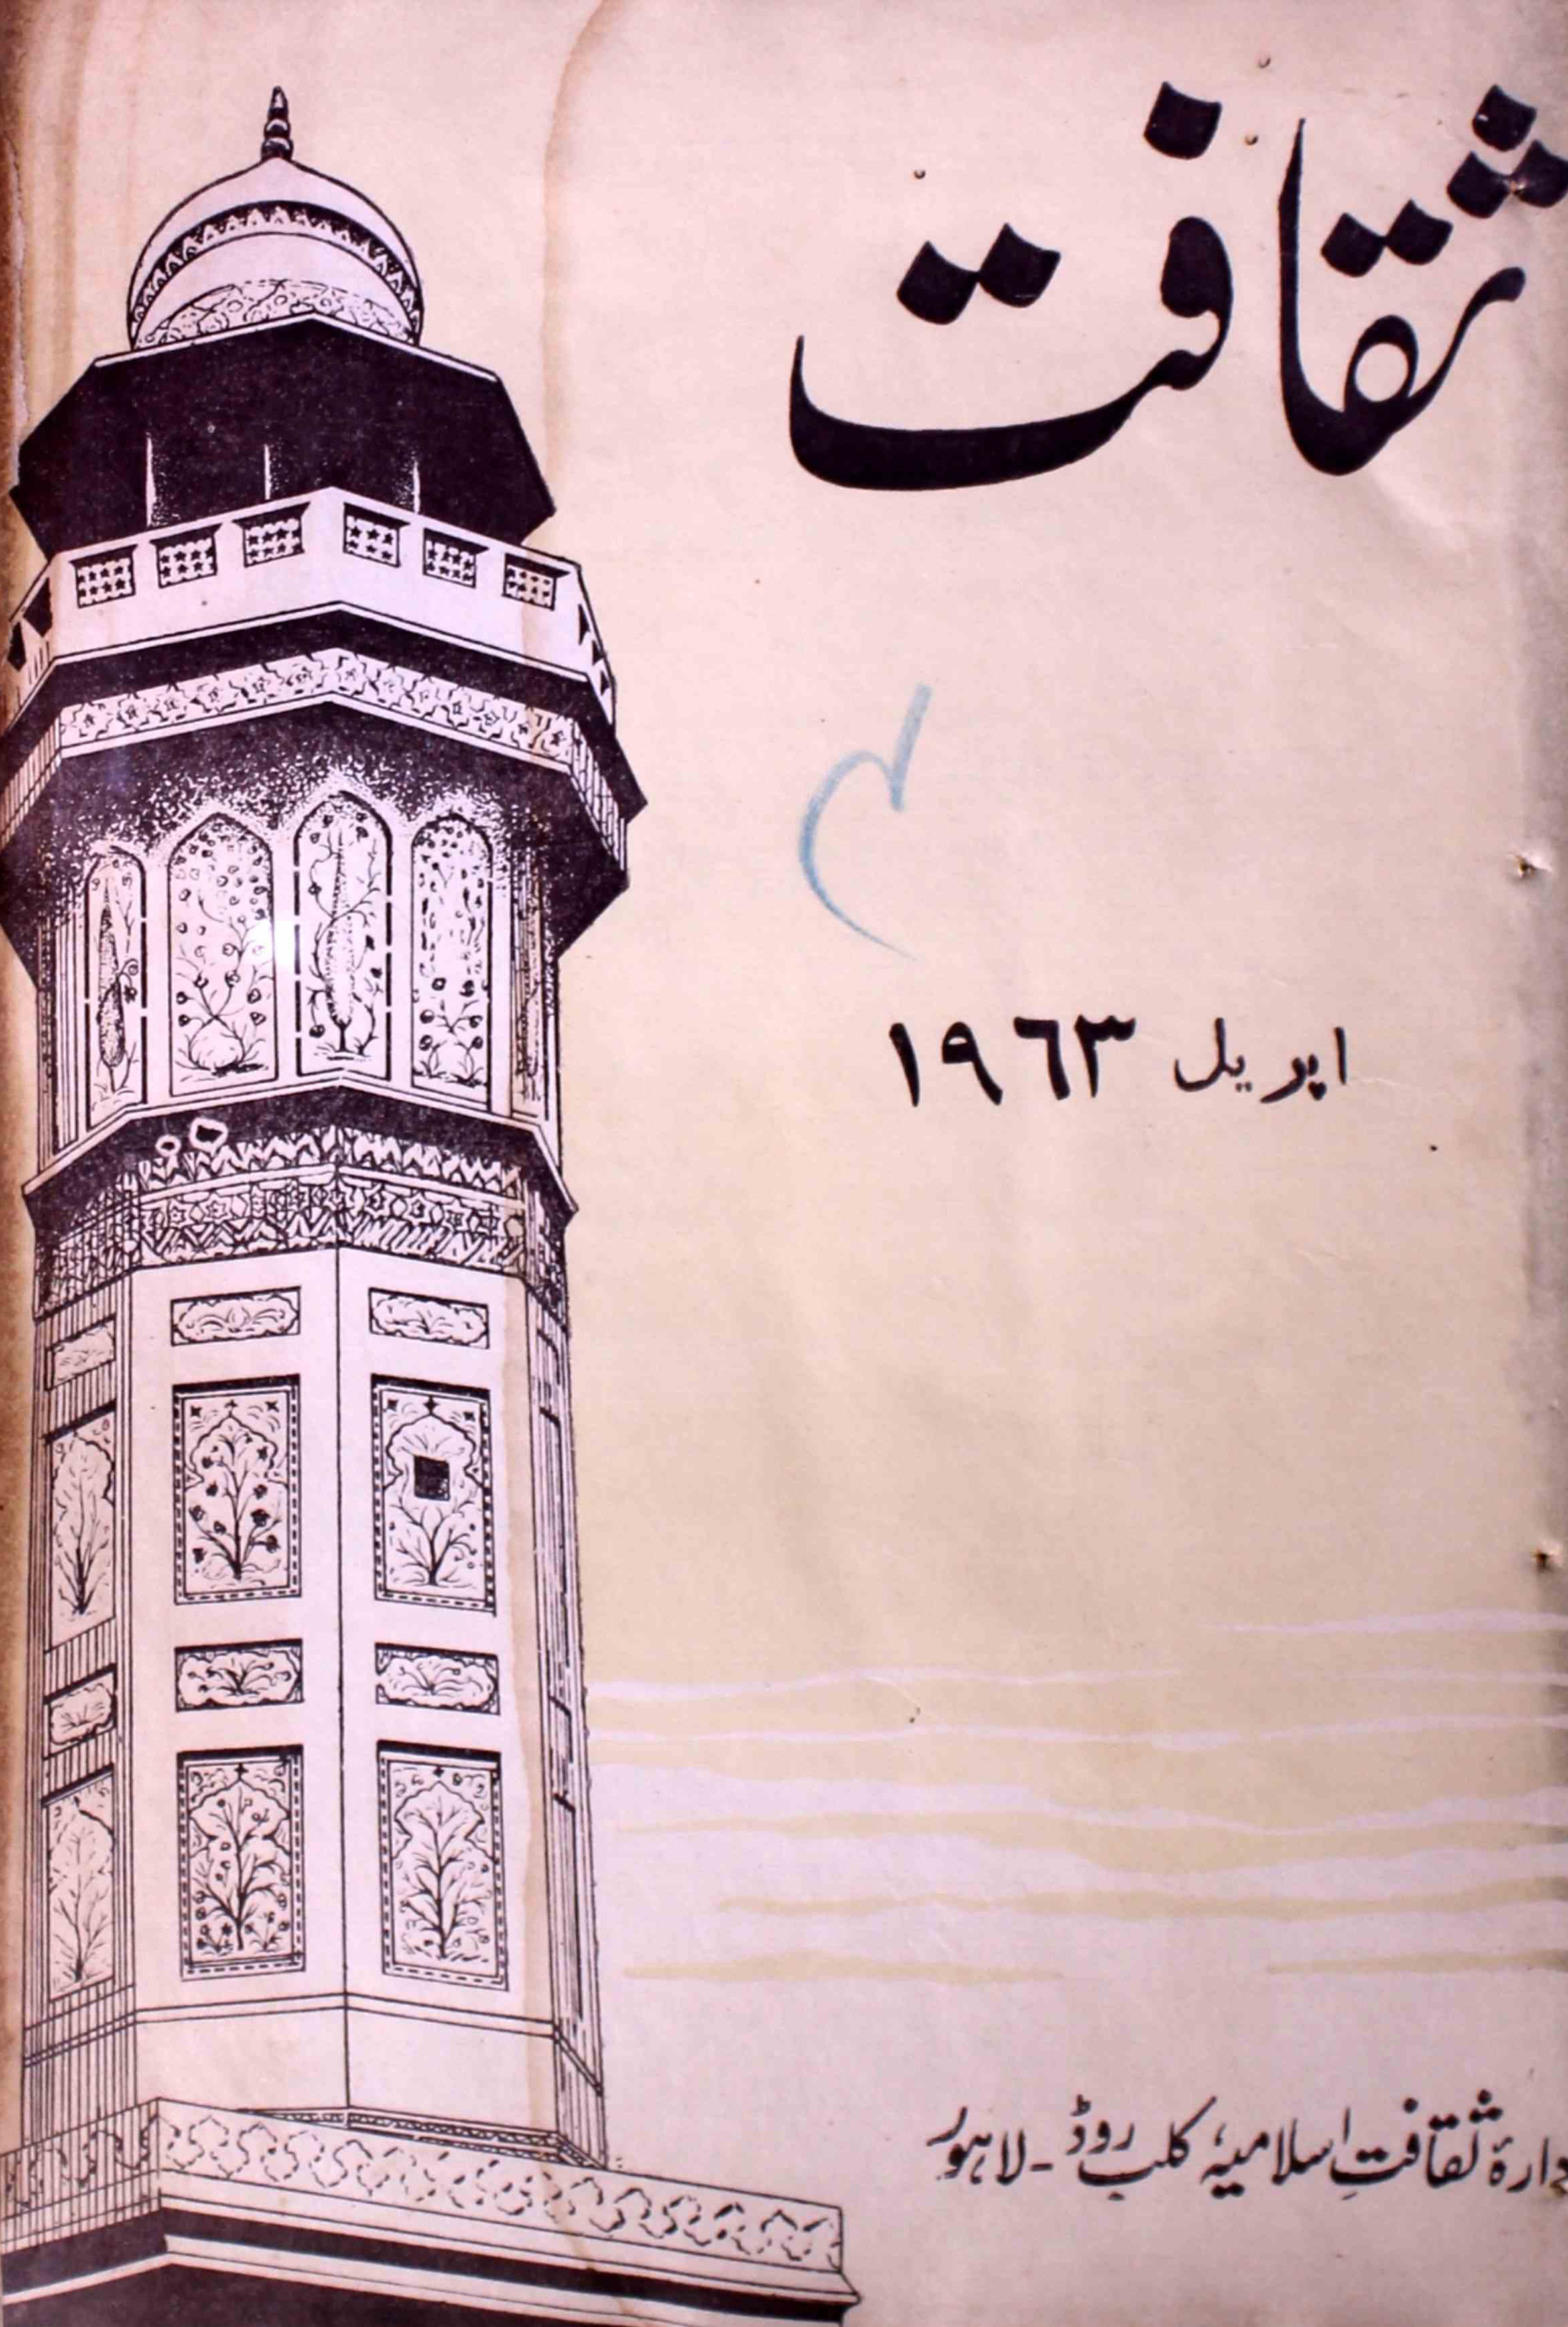 ثقافت
اپریل ۱۹۶۳
دارۂ ثقافتِ اسلامیہ، کلب روڈ - لاہور